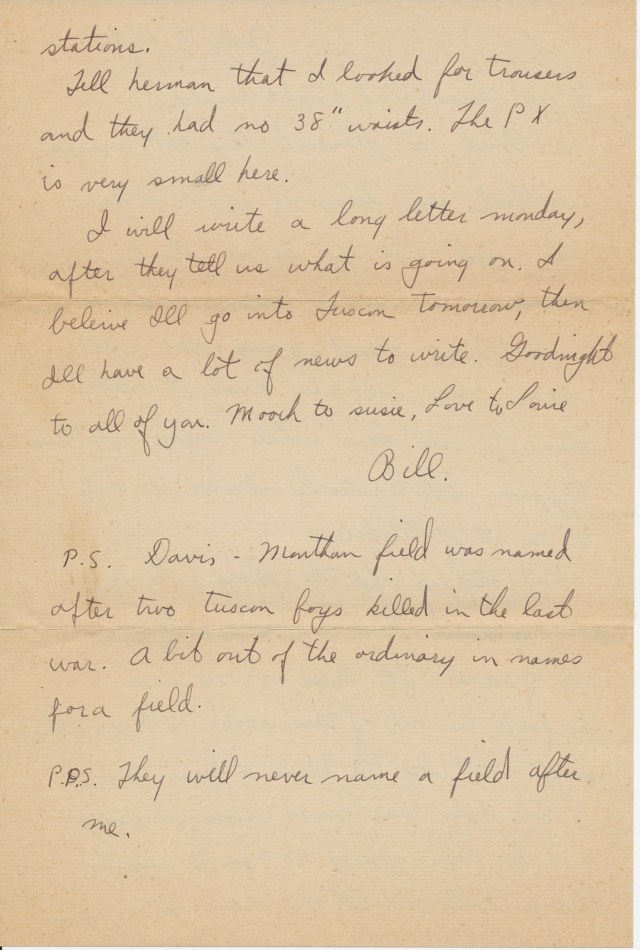 stations.
Tell herman that I looked for trousers
and they had no 38" waists. The PX
is very small here.
I will write a long letter monday,
after they tell us what is going on. I
beleive Ill go into Tuscon tomorrow, then
Ill have a lot of news to write. Goodnight
to all of you. Mooch to susie, Love to
Bill.
P.S. Davis - Monthan field was named
after two Tuscon boys killed in the last
war. A bit out of the ordinary in names
for a field.
P.P.S. They will never name a field after
me.